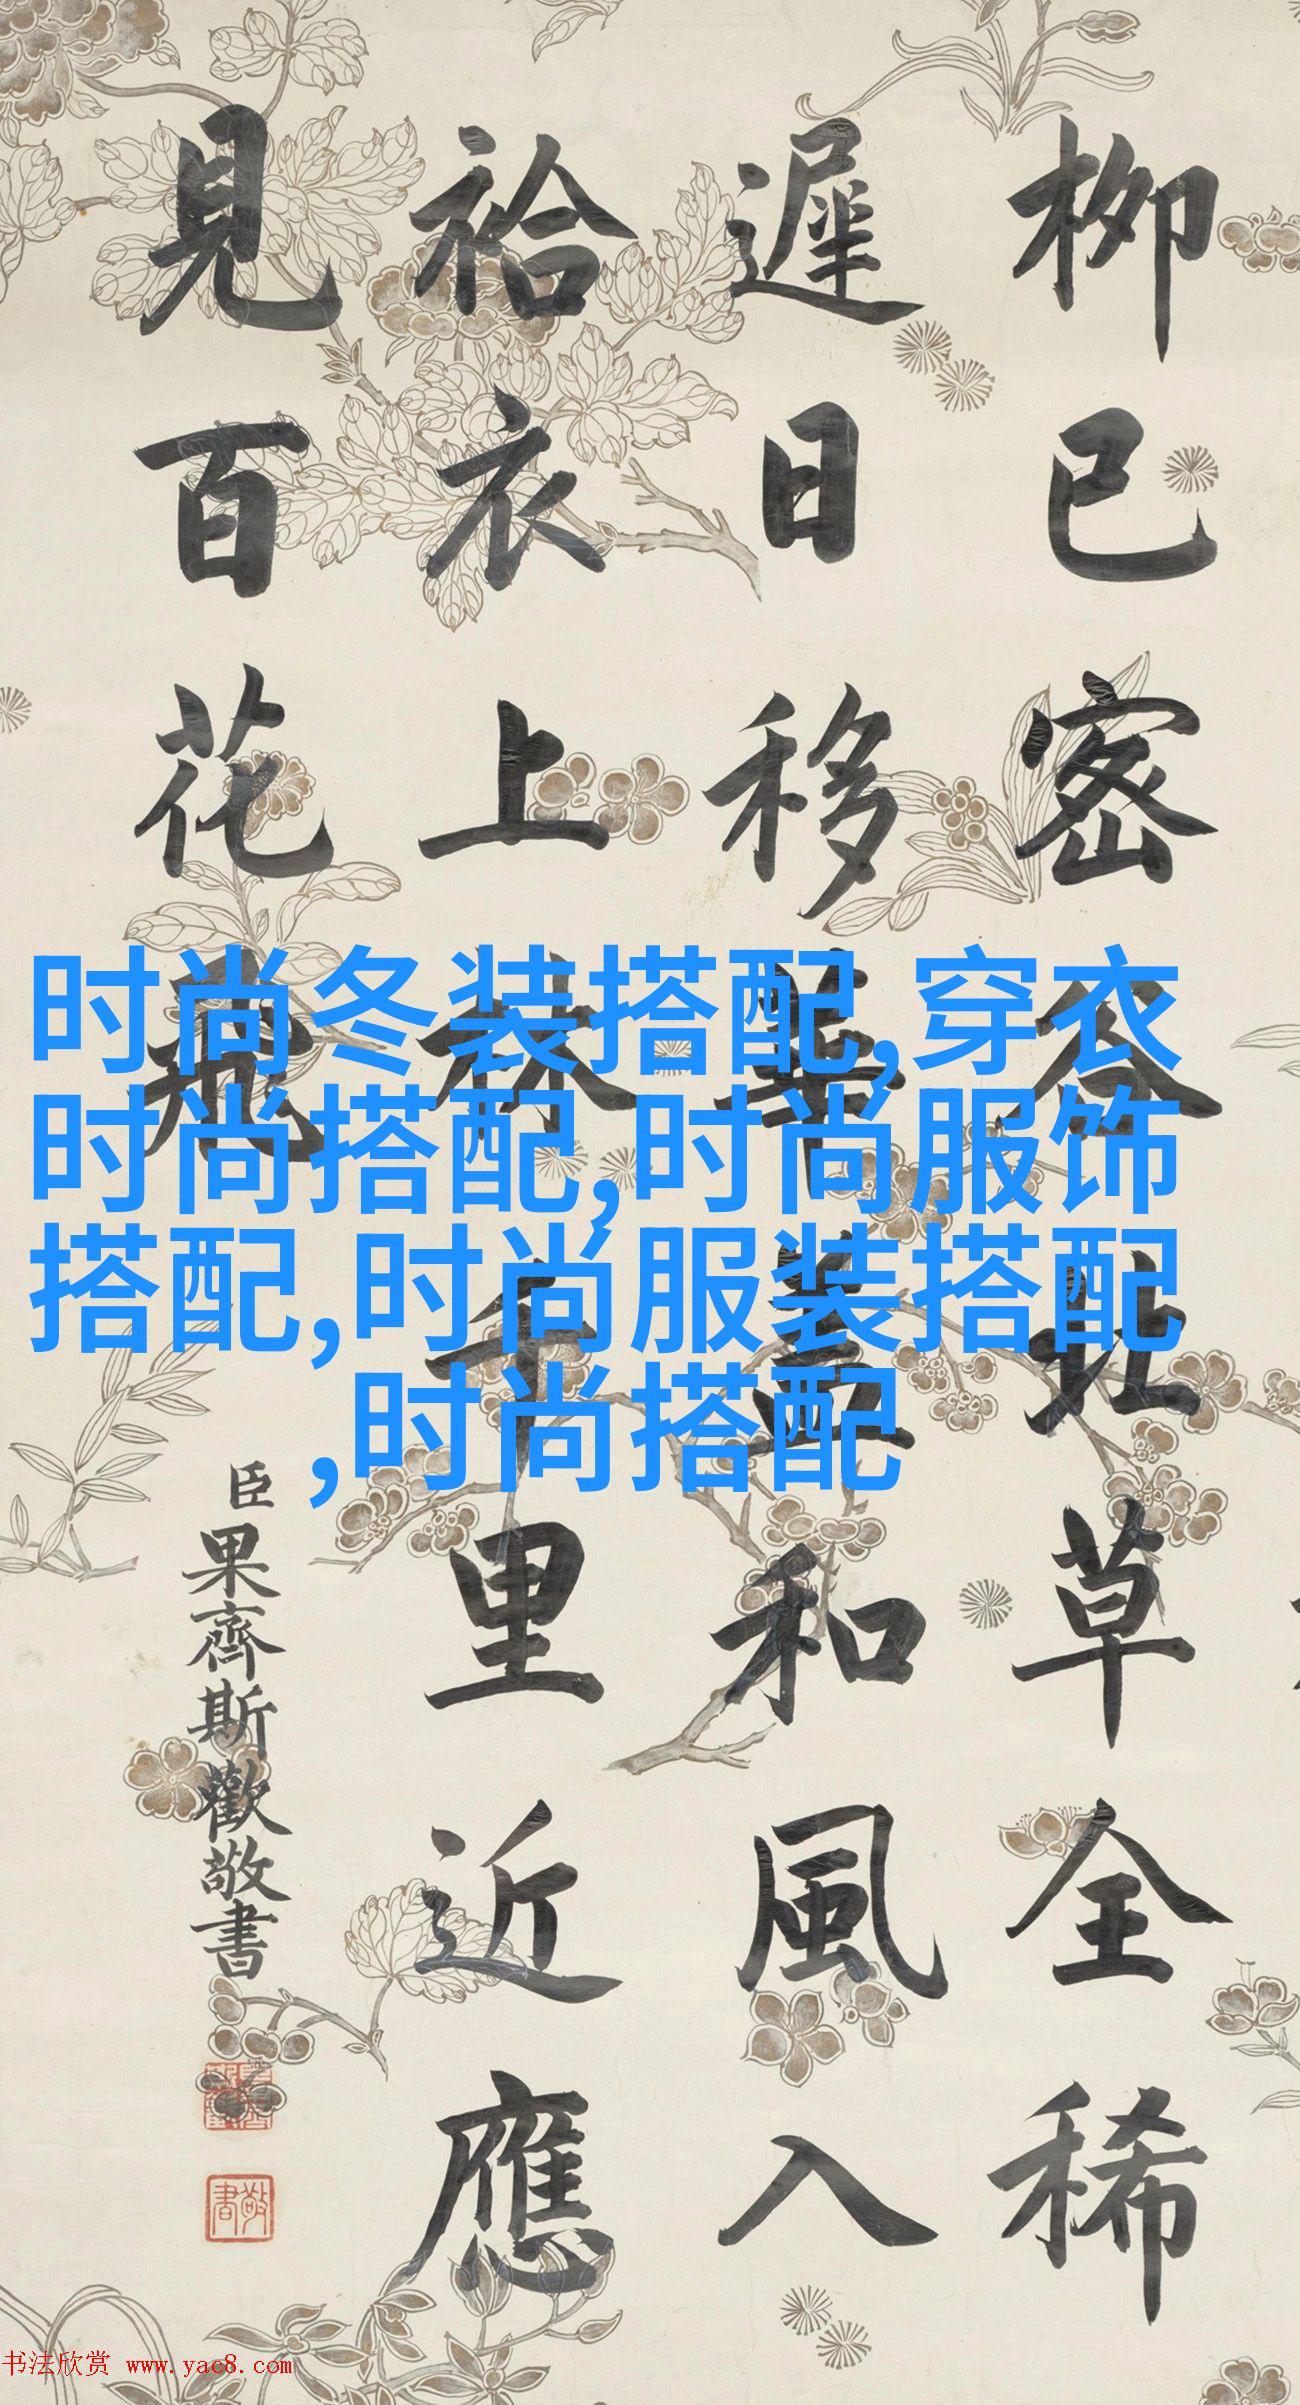 柳已密谷北草全稀
遲日移華蓋和風入
袷衣上林千里近應
見百花飛
臣果齊斯歡敬書
敬書
时尚冬装搭配,穿衣
时尚搭配,时尚服饰
搭配,时尚服装搭配
,时尚搭配
书法欣赏 www.yac8.com